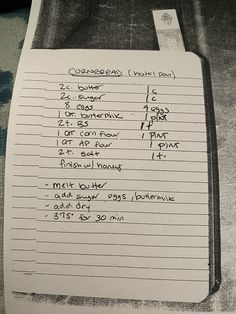 CORNBREAD (hotel pan)
2c. butter 1c
2c. sugar 1c
8 eggs 4 eggs
1 QT buttermilk 1 pint
2t. BS 1t
1 QT corn flour 1 pint
1 QT AP flour 1 pint
2t. salt 1t.
finish w/ honey
- melt butter
- add sugar, eggs, buttermilk
- add dry
- 375° for 30 min